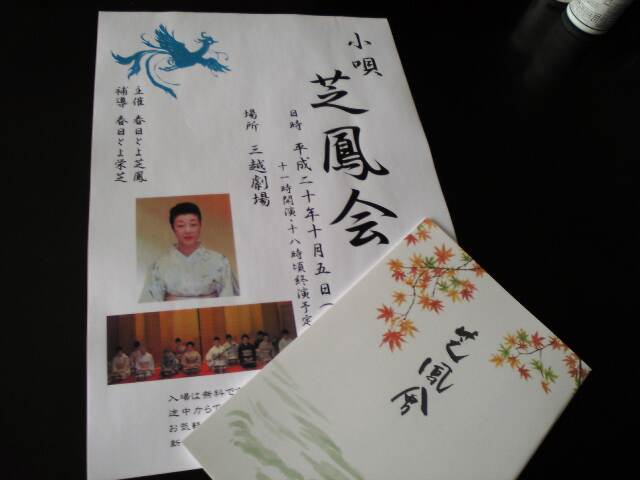 小唄
芝鳳会
日時 平成二十年十月五日(
十一時開演・十八時頃終演予定
場所 三越劇場
主催 春日とよ芝鳳
補導 春日とよ栄芝
入場は無料で
途中から
お気軽
芝鳳会